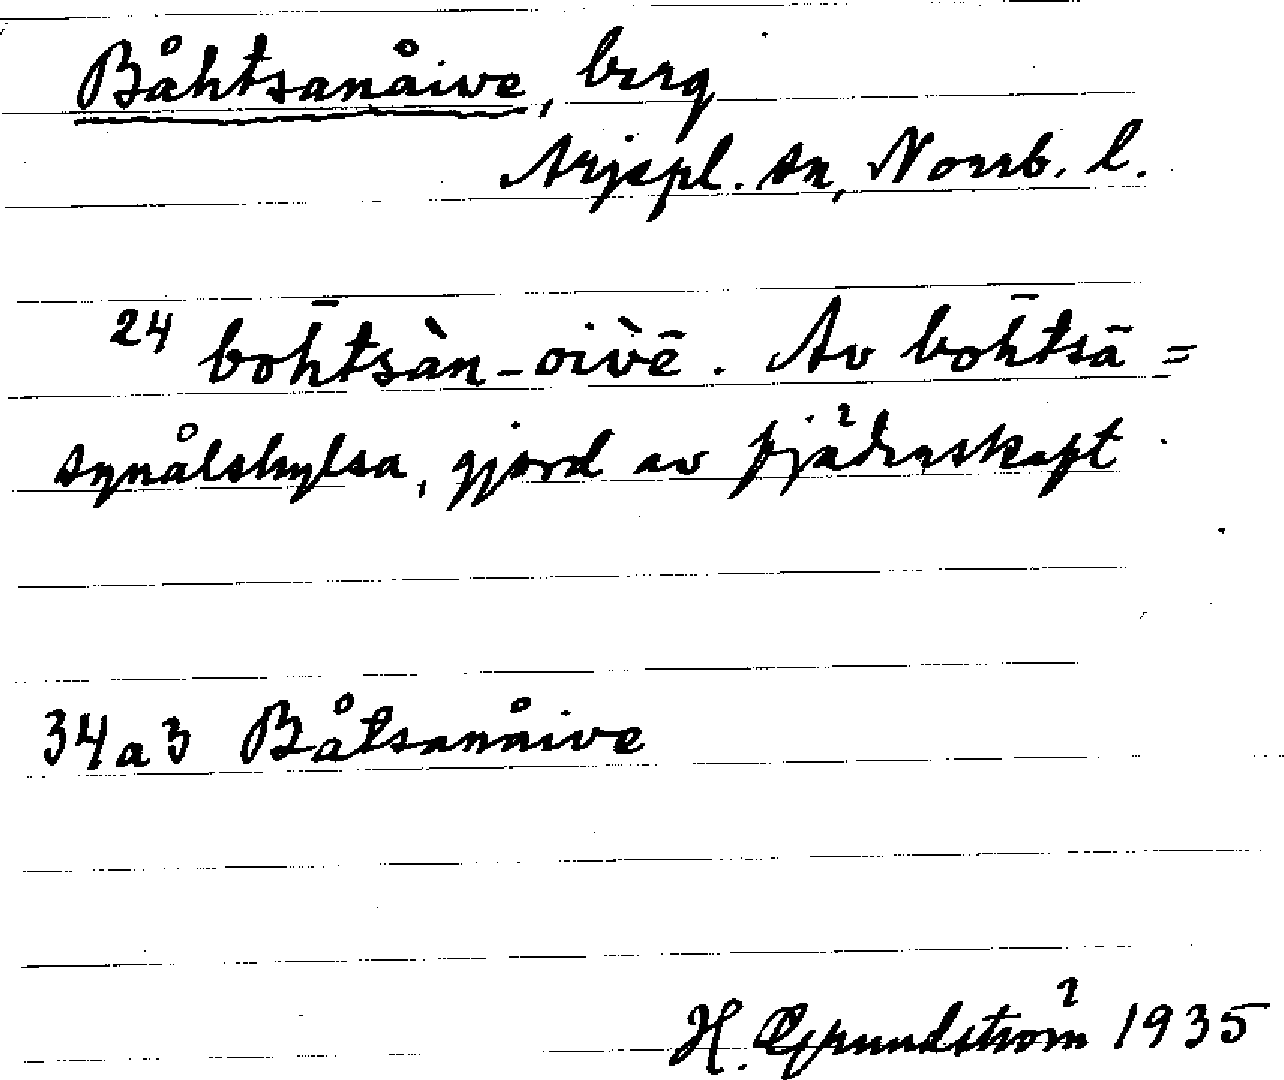 Båhtsanåive, berg
Arjepl. sn, Norrb. l.
24 bo͞htsàn-oivē. Av bo͞htsā =
synålshylsa, gjord av fjäderskaft
34a3 Båtsanåive
H. Grundström 1935